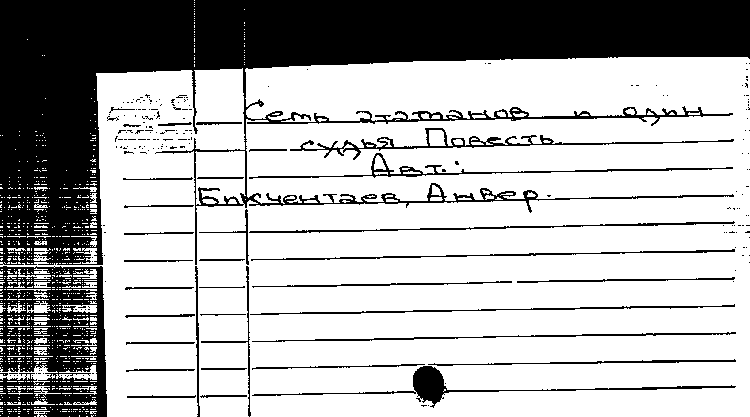 Семь атаманов и один
судья Повесть.
Авт.:
Бикчентаев, Анвер.